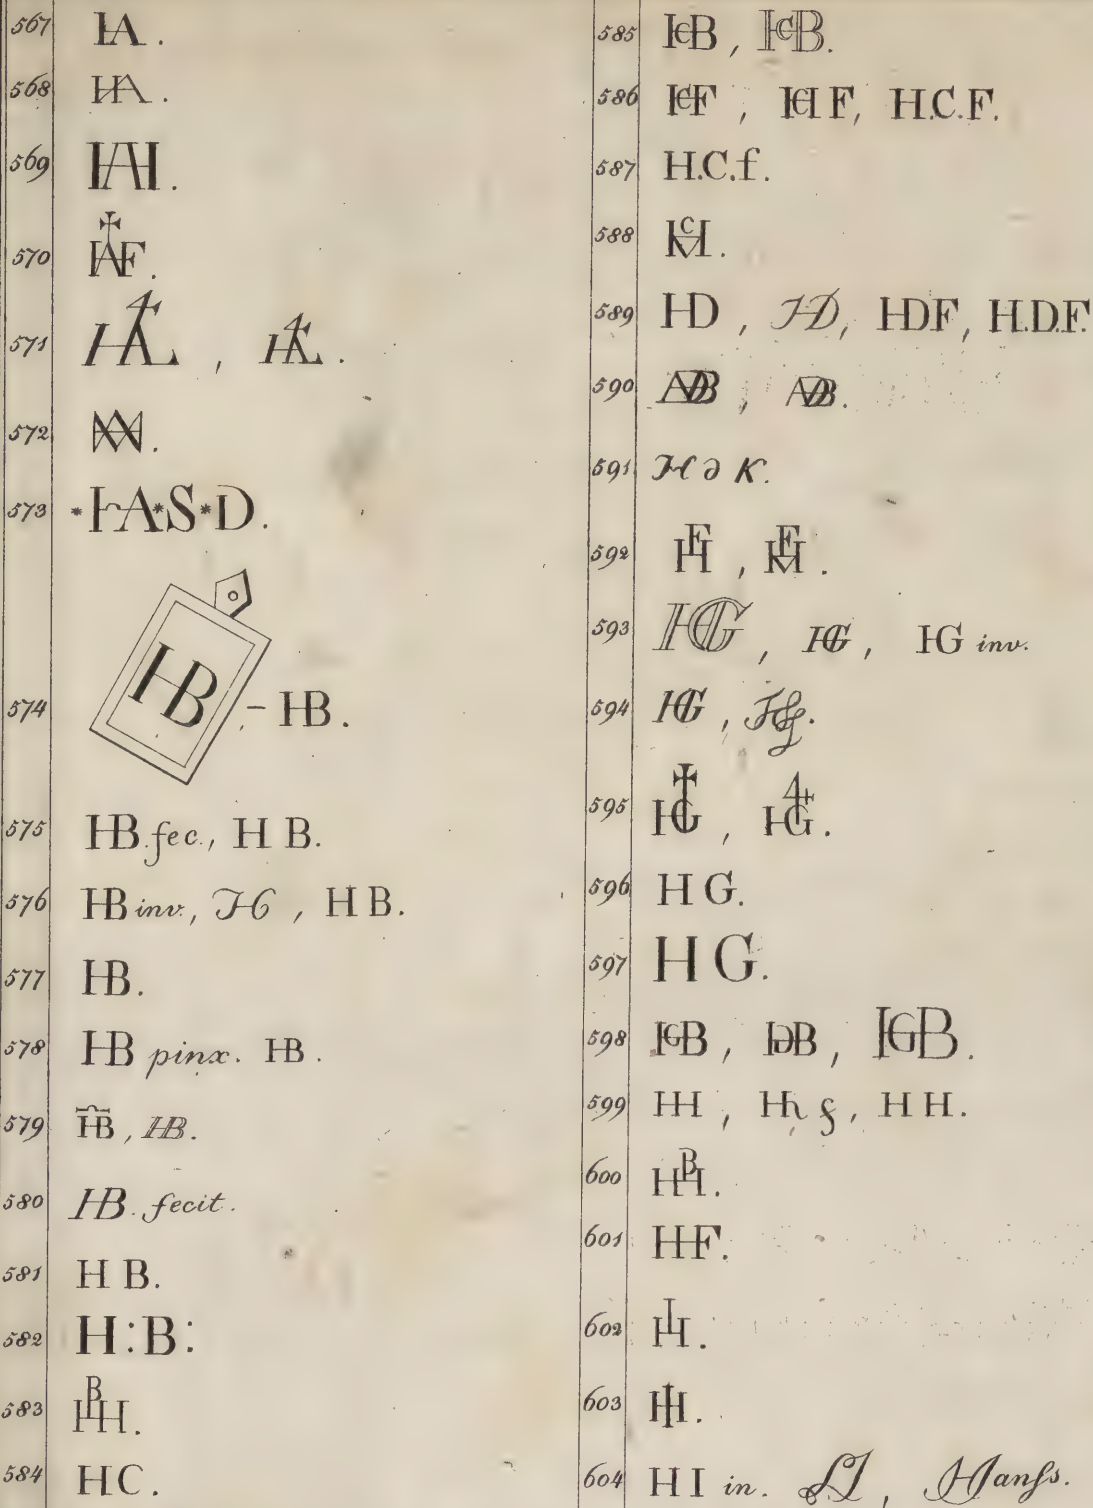 567 HA.
568 HA.
569 HAH.
570 HAF.
571 HAL, HAL.
572
573 *HA*S*D.
574 HB - HB.
575 HB. fec., H B.
576 HB inv., H B.
577 HB.
578 HB pinx. HB.
579 HB, HB.
580 HB. fecit.
581 H B.
582 H:B:
583 HBH.
584 HC.
585 HCB, HCB.
586 HCF, HCF, H.C.F.
587 H.C.f.
588 HCM.
589 HD, HD, HDF, H.D.F.
590
591 H d K.
592 HF,
593 HG, HG, HG inv.
594 HG, Hg.
595 HG, HG.
596 H G.
597 H G.
598 HGB, HGB.
599 HH, Hh, H H.
600 HBH.
601 HF.
602
603
604 H I in. Hanss.